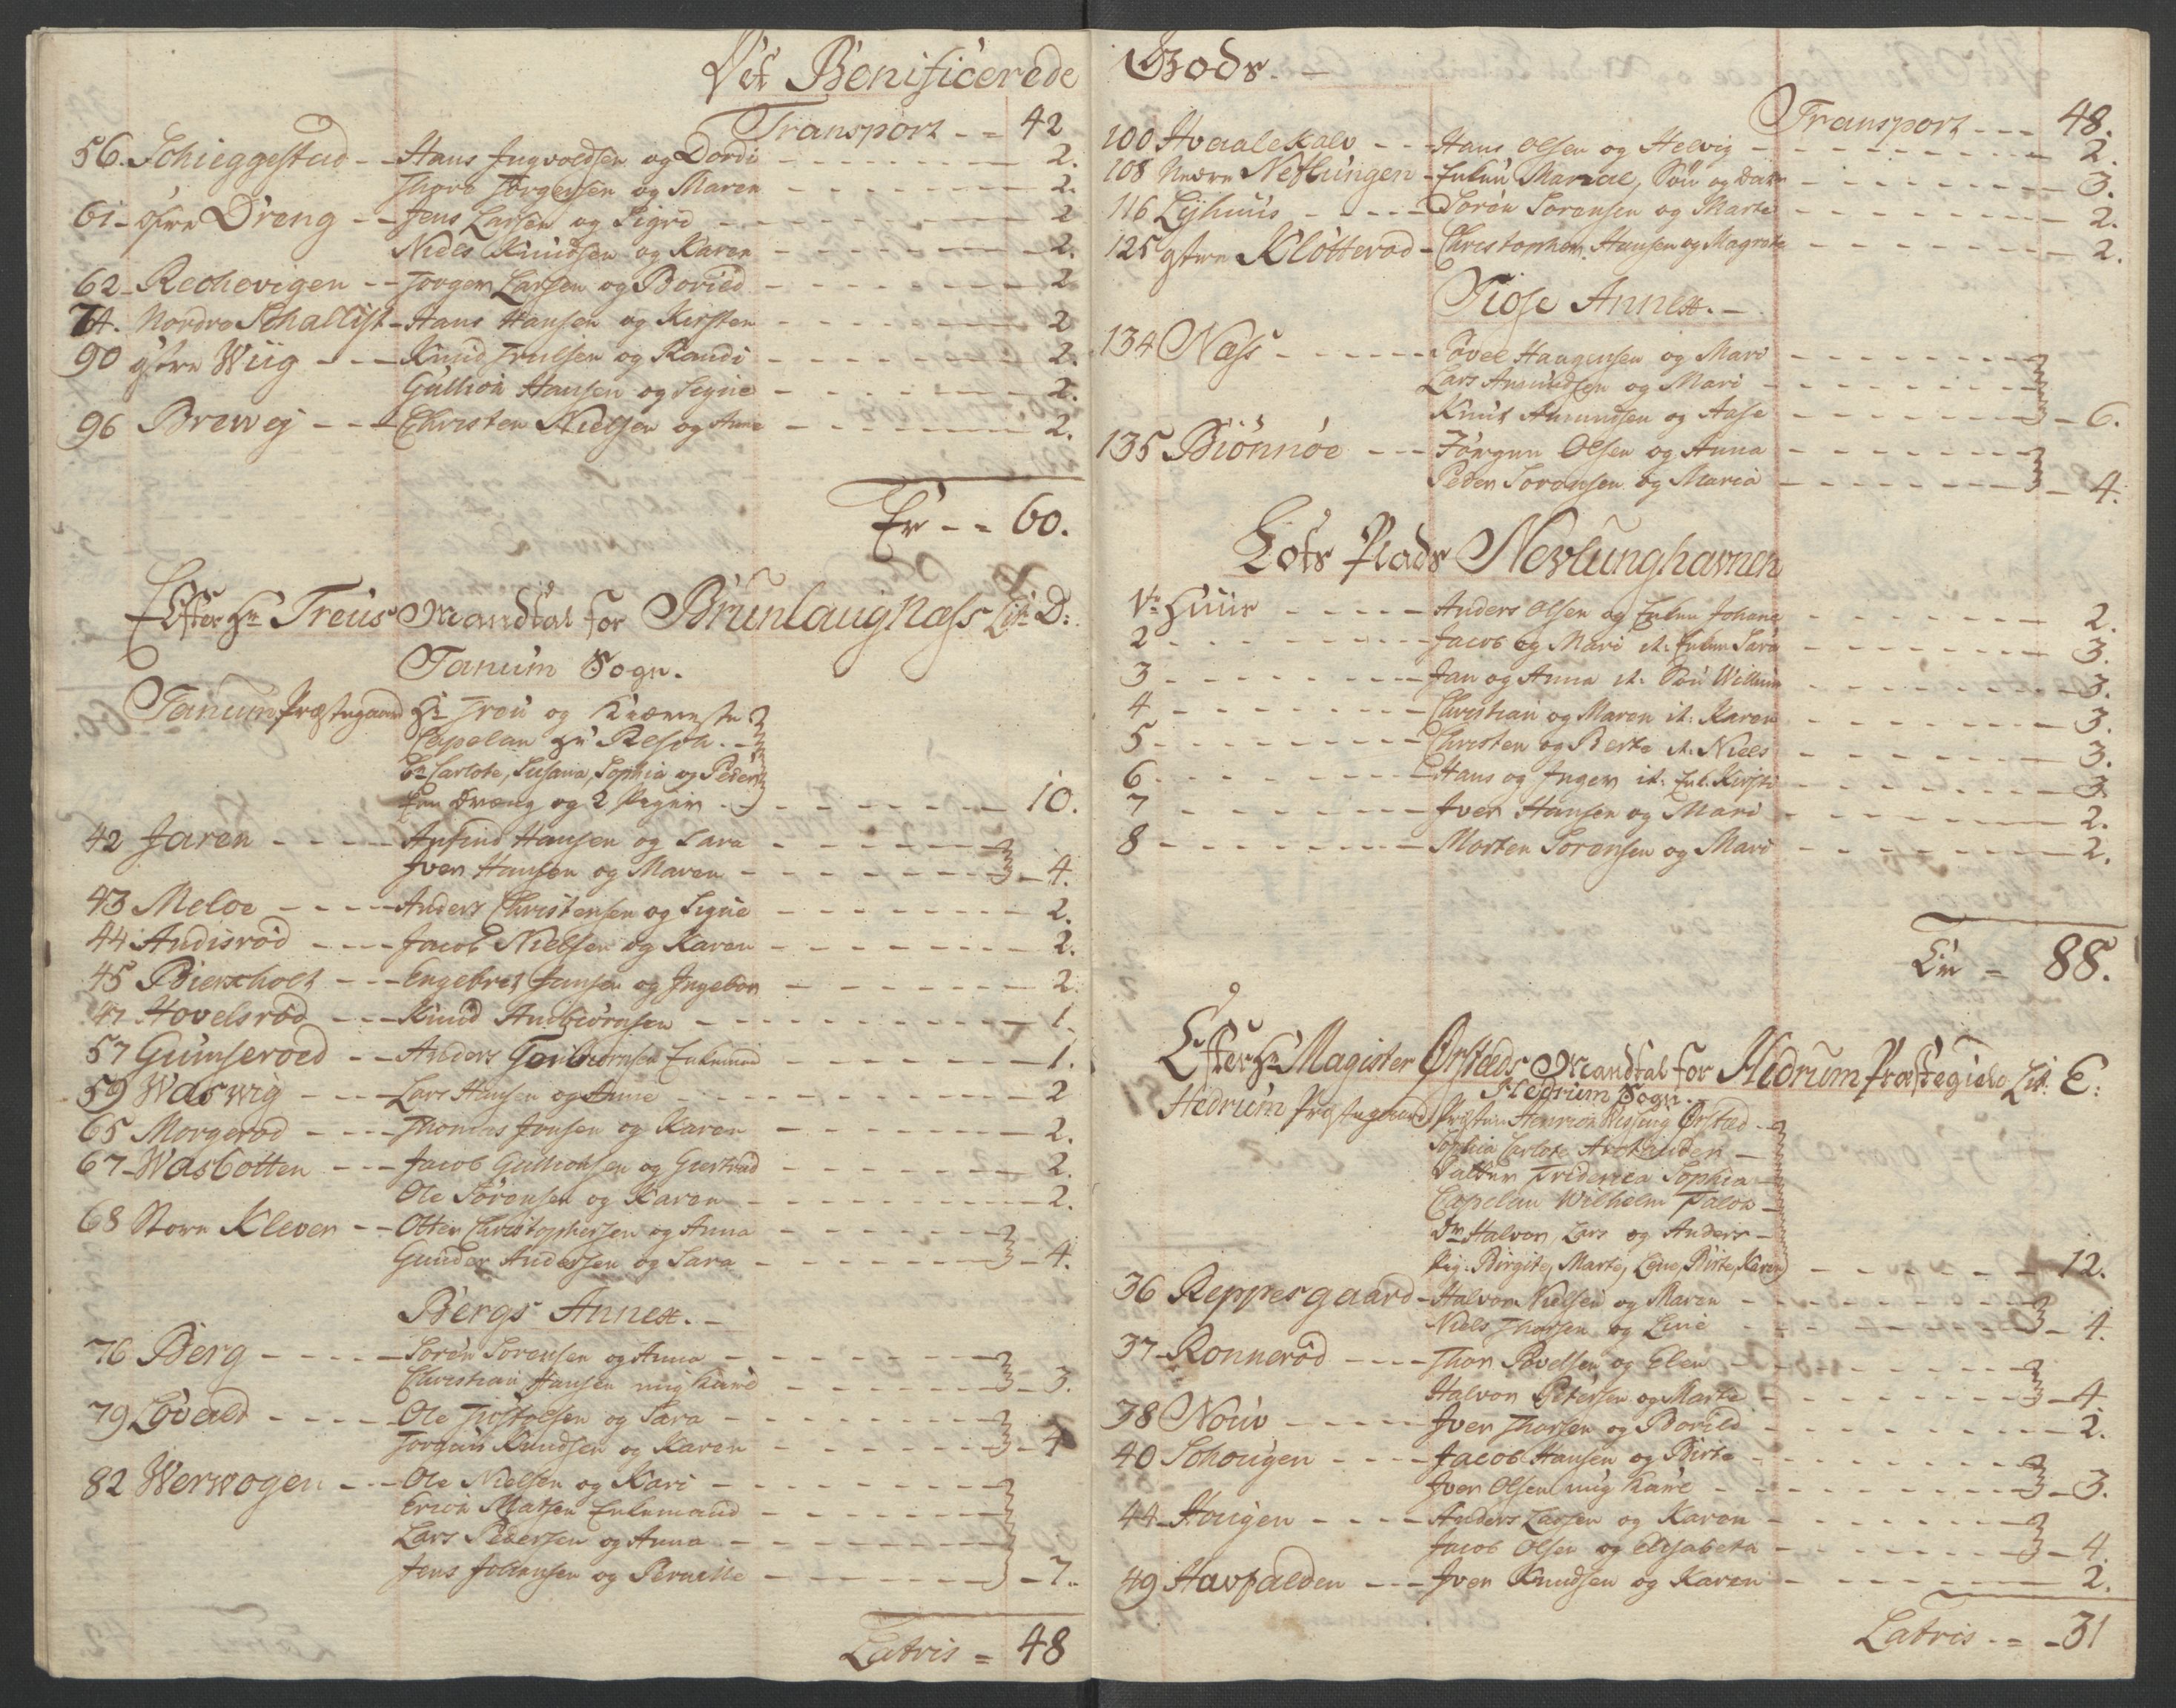 Det Benificerede
Transport - - 42
56. Schieggestad - - Hans Ingvoldsen og Dordi - - - 2.
Thore Jørgensen og Maren - - - 2.
61 - øfre Dreng - - Jens Larsen og Sigri - - - 2
Niels Knudsen og Karen - - - 2.
62 - Rechevigen - - Jørgen Larsen og Boried - - - 2
74. Nordre Schallist - Hans Hansen og Kirsten - - - 2
90 ytre Wiig - - - Knud Trulsen og Randi - - - 2.
Gulbion Hansen og Signe - - - 2.
96 Brewej - - - Christen Nielsen og Anne - - - 2.
Er - - 60.
Efter Hr Treus Mandtal for Brunlaugnæss Lit: D:
Tanum Sogn.
Tanum Præstegaard Hr Treu og Kiæreste
Capelan Hr
Carlote, Susana, Sophia og Peder
Een Dreng og 2 Piger - - - 10.
42 Jaren - - - Anfind Hansen og Sara - - -
Iver Hansen og Maren - - - 4.
43 Meloe - - - Anders Christensen og Signe - - - 2.
44 Andisrød - - - Jacob Nielsen og Karen - - - 2.
45 Bierscholt - - - Engebret Jansen og Ingebor - - - 2.
47 Hovelsrød - - - Knud Anbiørnsen - - - 1.
57 Gumseroed - - Anders Torbiørnsen Enkemand - - - 1.
59 Waswig - - - Lars Hansen og Anne - - - 2
65 Morgerød - - - Thomas Jonsen og Karen - - - 2.
67 - Wasbotten - - - Jacob Gulbionsen og Gurtrud - - - 2.
Ole Sørensen og Karen - - - 2.
68 Store Klever - - Otter Christophersen og Anna - - -
Gunder Andersen og Sara - - - 4.
Bergs Annex. -
76 Berg - - - Sørøn Sørensen og Anna - - -
Christian Hansen ung Karl - - - 3.
79 Løvald - - - Ole Tiostolsen og Sara - - -
Torgius Knudsen og Karen - - - 4
82 Werwogen - - - Ole Nielsen og Kari - - -
Erich Matsen Enkemand - - -
Lars Pedersen og Anna - - -
Jens Johansen og Pernille - - - 7.
Latris = 48
Gods. -
Transport - - - 48.
100 Hvaalekalv - - - Hans Olsen og Helvig - - - 2.
108 Nedre Neflungen - Enken Mariae, Søn og Datr - - - 3.
116 Lyshuus - - - Sørøn Sørensen og Marte - - - 2.
125 ystre Kløtterød - Christopher Hansen og Magrete - - - 2.
Tiose Annex. -
134 Næss - - - Povel Haagensen og Mari - - -
Lars Amundsen og Mari - - -
Knut Amundsen og Aase - - - 6.
135 Biønnøe - - - Jørgen Olsen og Anna - - -
Peder Sørensen og Maria - - - 4.
Lots Plads Nevlunghavnen
1te Huus - - - Anders Olsen og Enken Johane - - - 2.
2 - - - Jacob og Mari it: Enken Sara - - - 3.
3 - - - Jan og Anna it: Søn Willum - - - 3.
4 - - - Christian og Maren it: Karen - - - 3.
5 - - - Christen og Berte it: Niels - - - 3.
6 - - - Hans og Inger it: Enk: Kirsti - - - 3
7 - - - Iver Hansen og Mari - - - 2.
8 - - - Morten Sørensen og Mari - - - 2.
Er = 88.
Efter Hr Magister Ørsteds Mandtal for Hedrum Præstegield Lit. E:
Hedrum Sogn.
Hedrum Præstegaard Præsten Henrich Wissing Ørsted -
Sophia Carlote Archander -
Datter Friderica Sophia -
Capelan Wilhelm Falch -
Dr. Halvor, Lars og Anders -
Pig: Birgite, Marte, Lene, Birte, Karen - - - 12.
36 Reppesgaard - Halvor Nielsen og Maren - - -
Niels Thorsen og Line - - - 4.
37 - Ronnerød - - - Thor Povelsen og Elen - - -
Halvor Petersen og Marte - - - 4.
38 Nouv - - - Iver Thorsen og Borild - - - 2.
40 Schougen - - - Jacob Hansen og Birte - - -
Iver Olsen ung Karl - - - 3.
44 - Hougen - - - Anders Larsen og Karen - - -
Jacob Olsen og Elisabeta - - - 4.
49 Havfalden - - - Iver Knudsen og Karen - - - 2.
Latris - = - 31